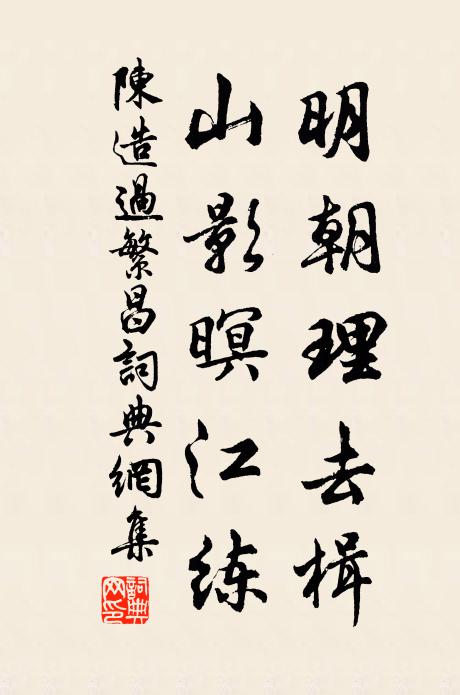 明朝理去楫
山影暝江练
陳造過繁昌詞典網集
詞典网印